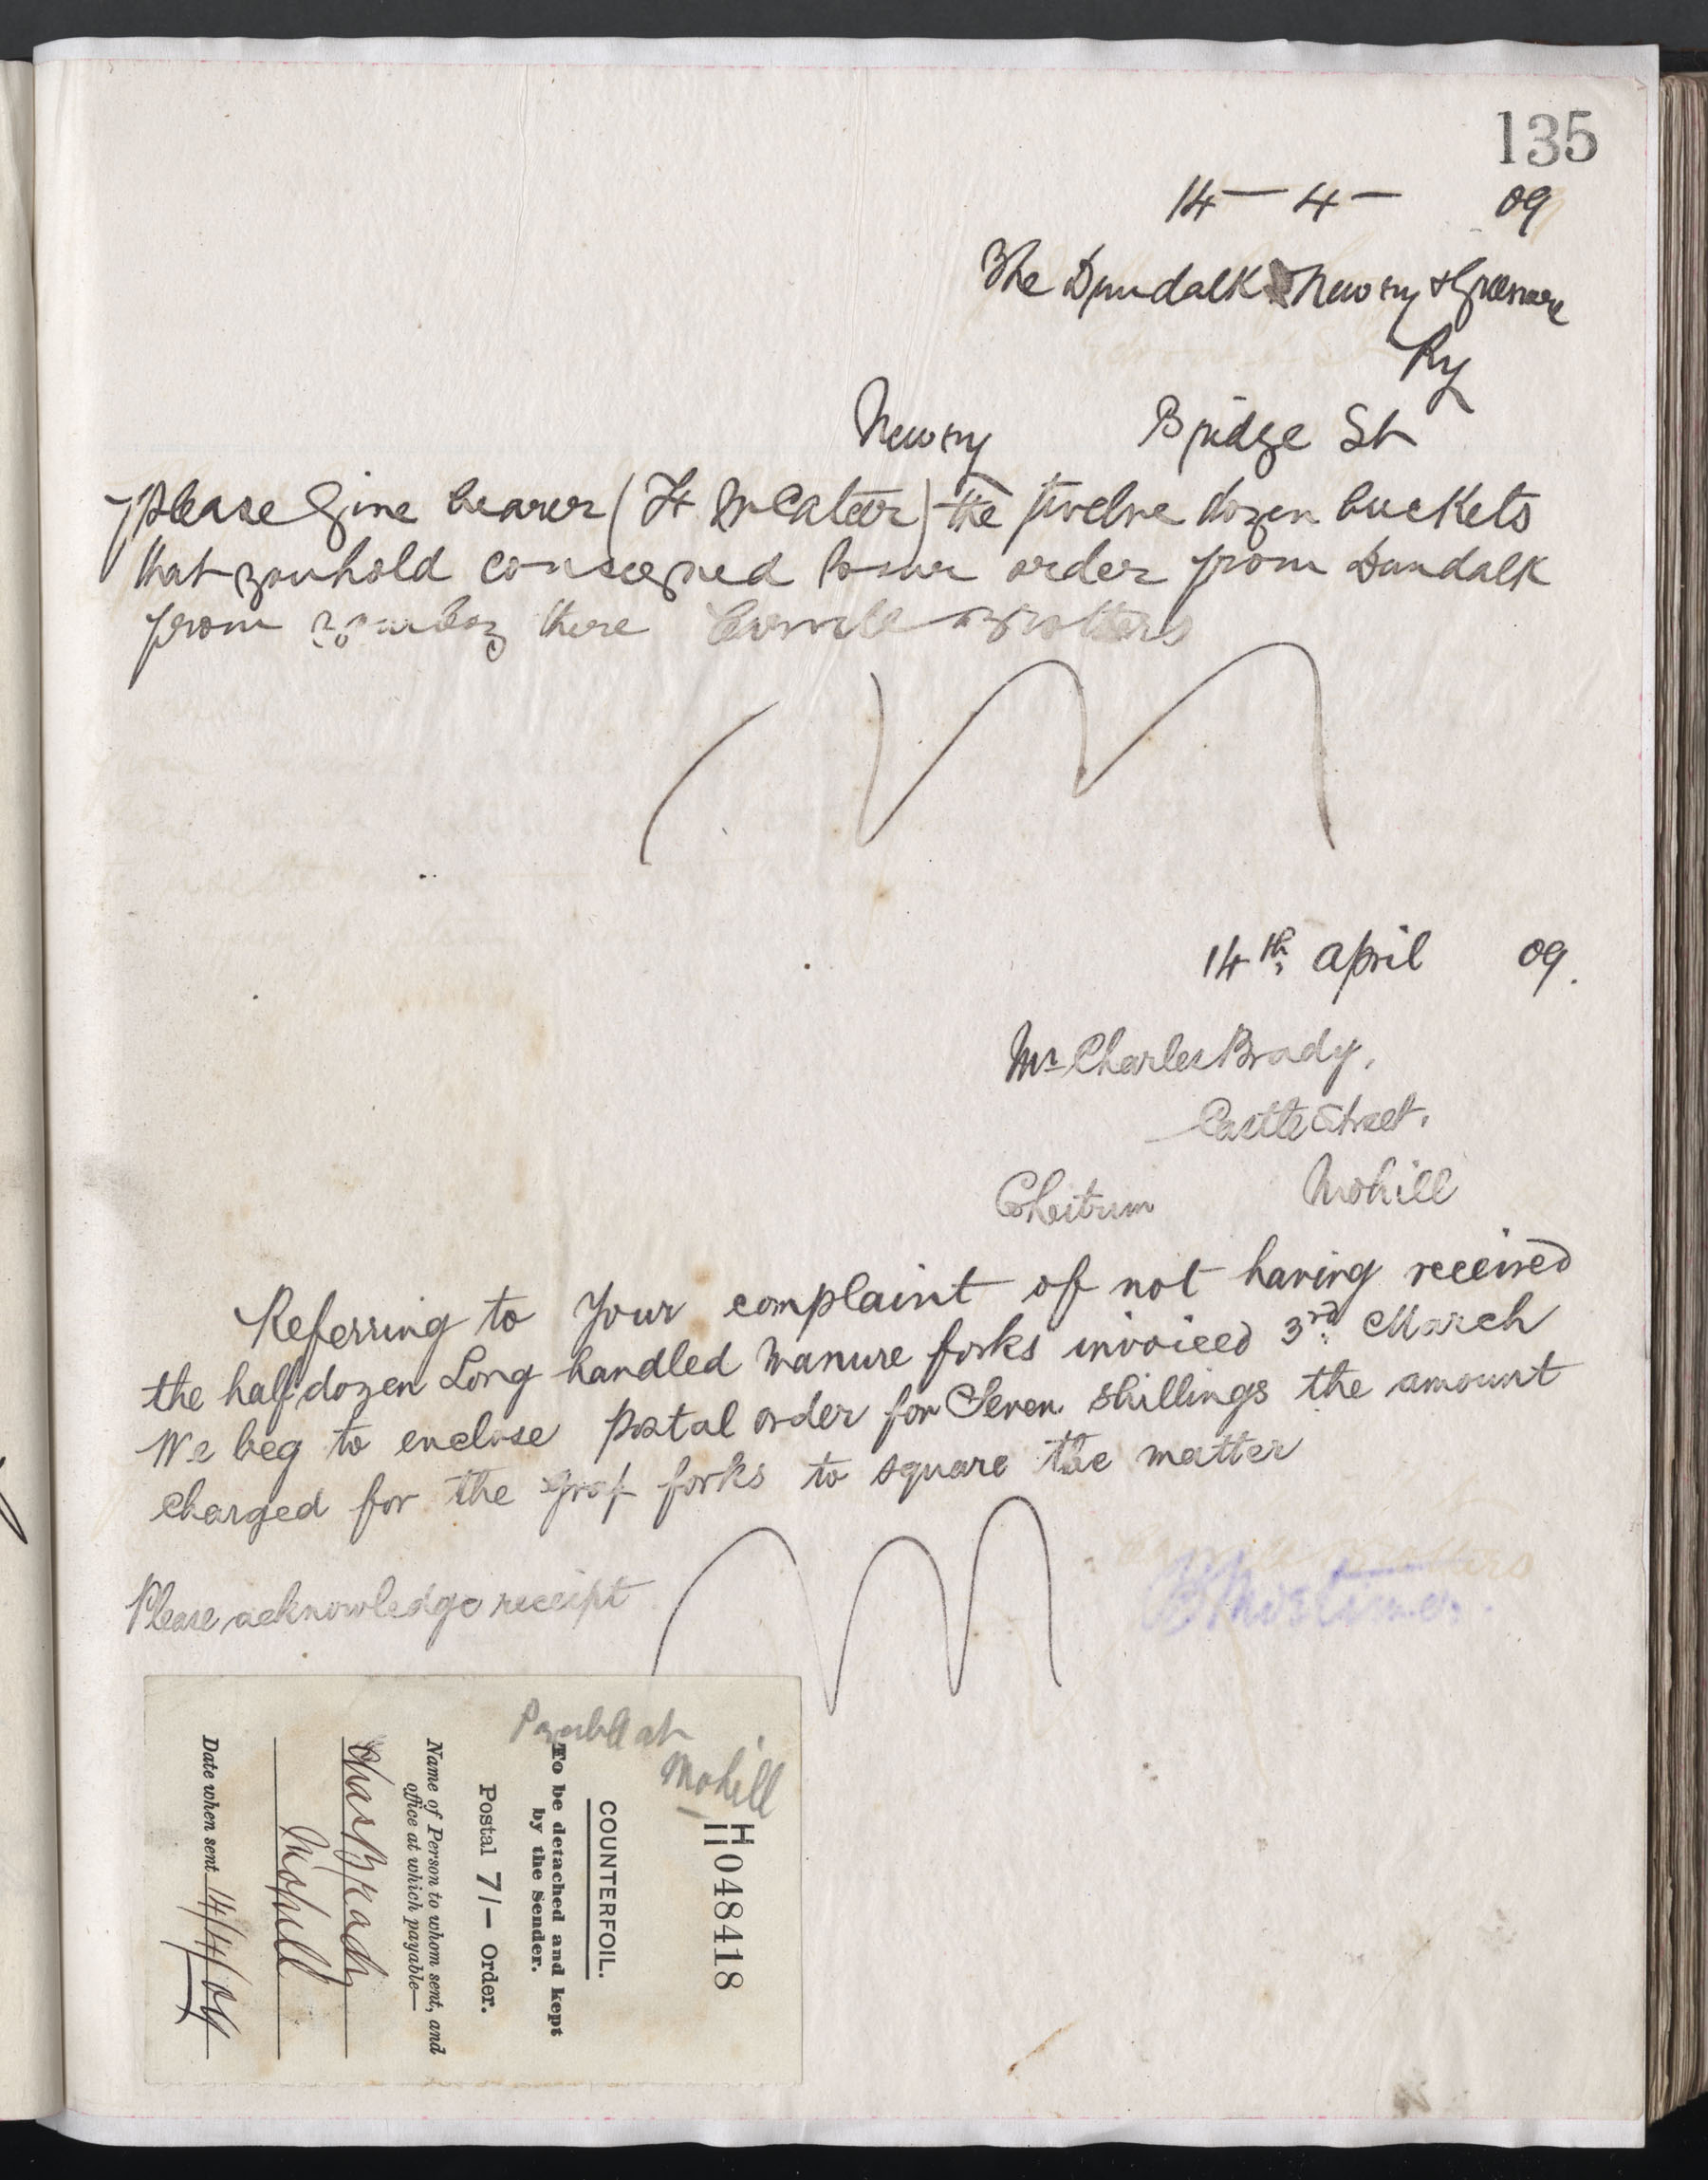 135
14 - 4 - 09
The Dundalk Newry & Greenore
Ry
Newry Bridge St
Please give bearer (H McAteer) the twelve dozen buckets
that you hold consigned to our order from Dundalk
from there Carvill Brothers
14th April 09.
Mr Charles Brady,
Castle Street,
Co Leitrim Mohill
Referring to your complaint of not having received
the half dozen Long handled Manure forks invoiced 3rd March
We beg to enclose postal order for Seven shillings the amount
charged for the forks to square the matter
Carvill Brothers
Please acknowledge receipt
Payable at
Mohill
H
11 048418
COUNTERFOIL.
To be detached and kept
by the Sender.
Postal 7/- Order.
Name of Person to whom sent, and
office at which payable—
Chas Brady
Mohill
Date when sent 14/4/09